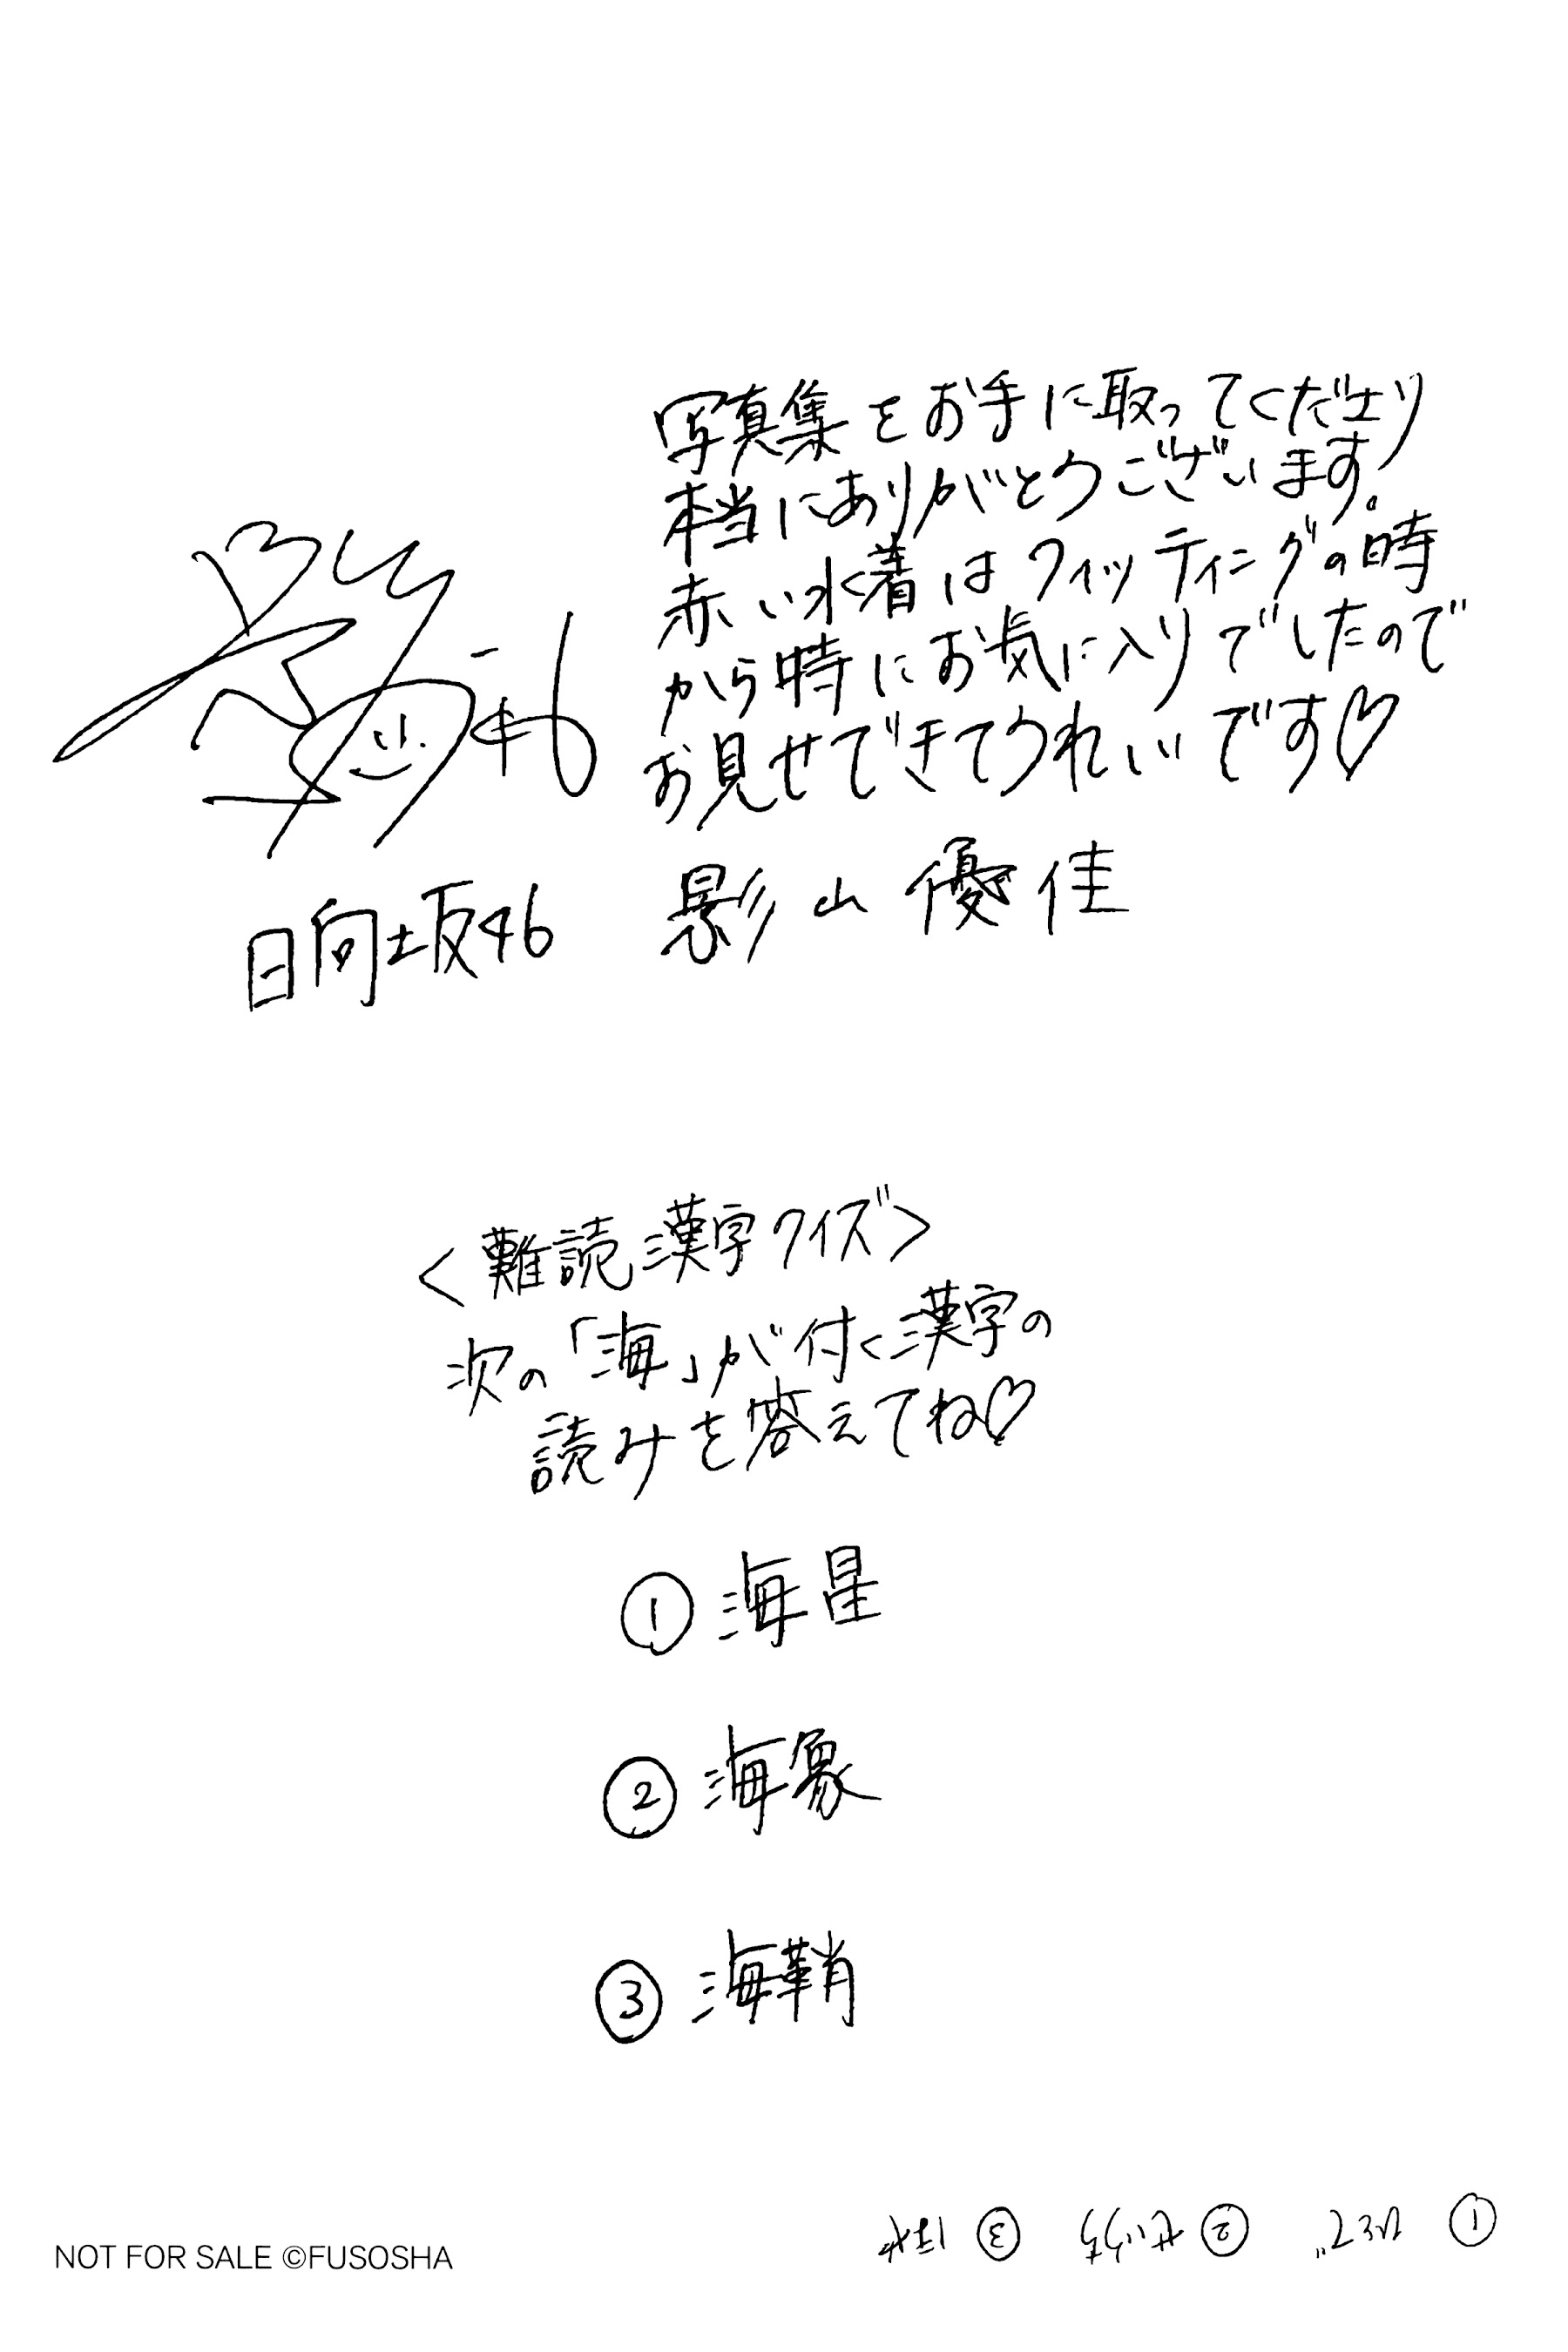 写真集をお手に取ってくださり
本当にありがとうございます。
赤い水着はフィッティングの時
から特にお気に入りでしたので
お見せできてうれしいです♡
日向坂46 影山優佳
<難読漢字クイズ>
次の「海」が付く漢字の
読みを答えてね♡
① 海星
② 海象
③ 海鞘
① ひとで ② せいうち ③ ほや
NOT FOR SALE ©FUSOSHA